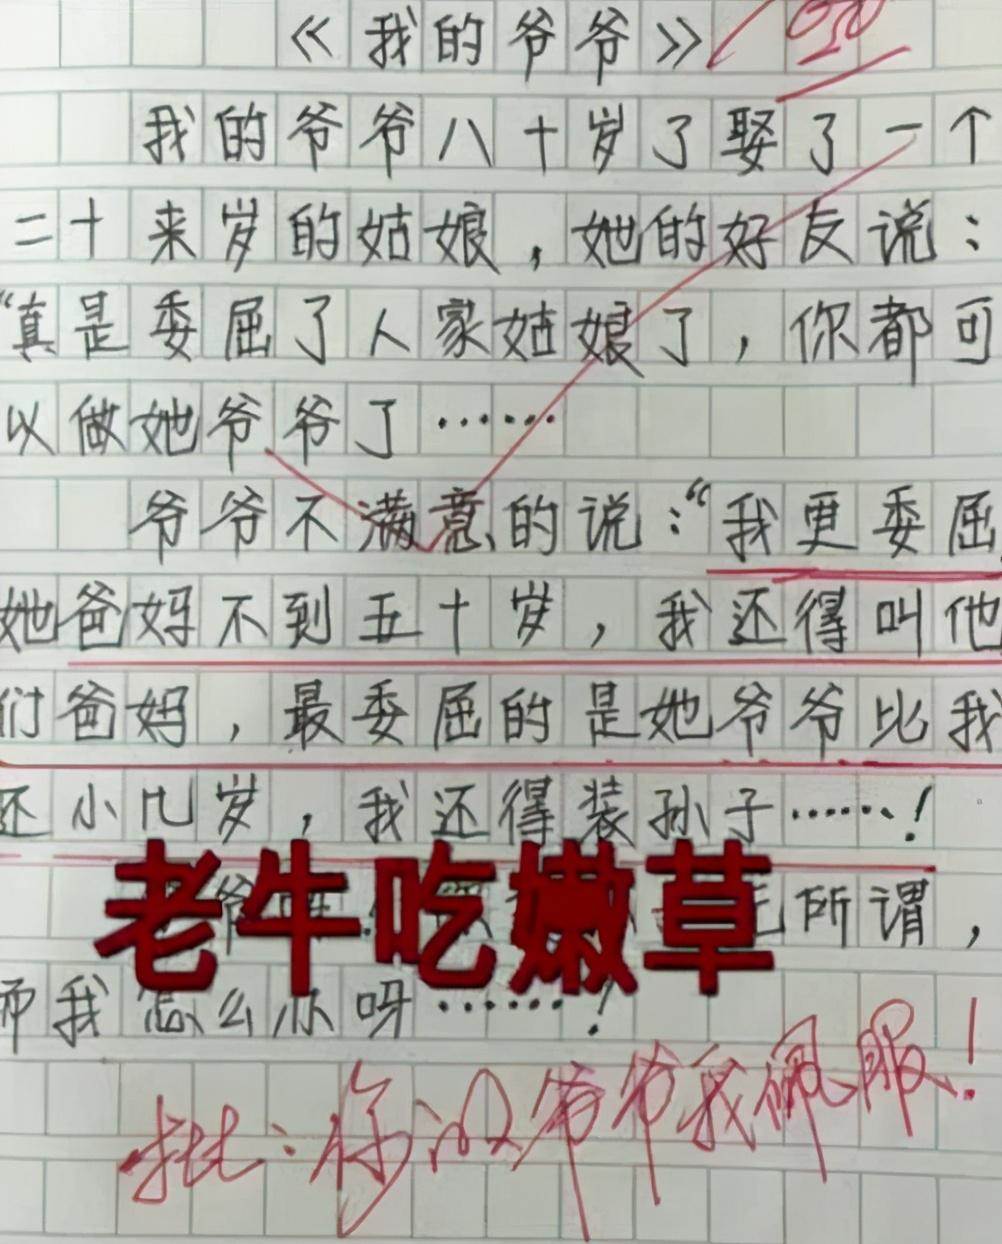 《我的爷爷》
我的爷爷八十岁了娶了一个
二十来岁的姑娘，她的好友说：
“真是委屈了人家姑娘了，你都可
以做她爷爷了……
爷爷不满意的说：“我更委屈
她爸妈不到五十岁，我还得叫他
们爸妈，最委屈的是她爷爷比我
还小几岁，我还得装孙子……！
老牛吃嫩草
所谓，
而我怎么办呀……！
批：你的爷爷我佩服！